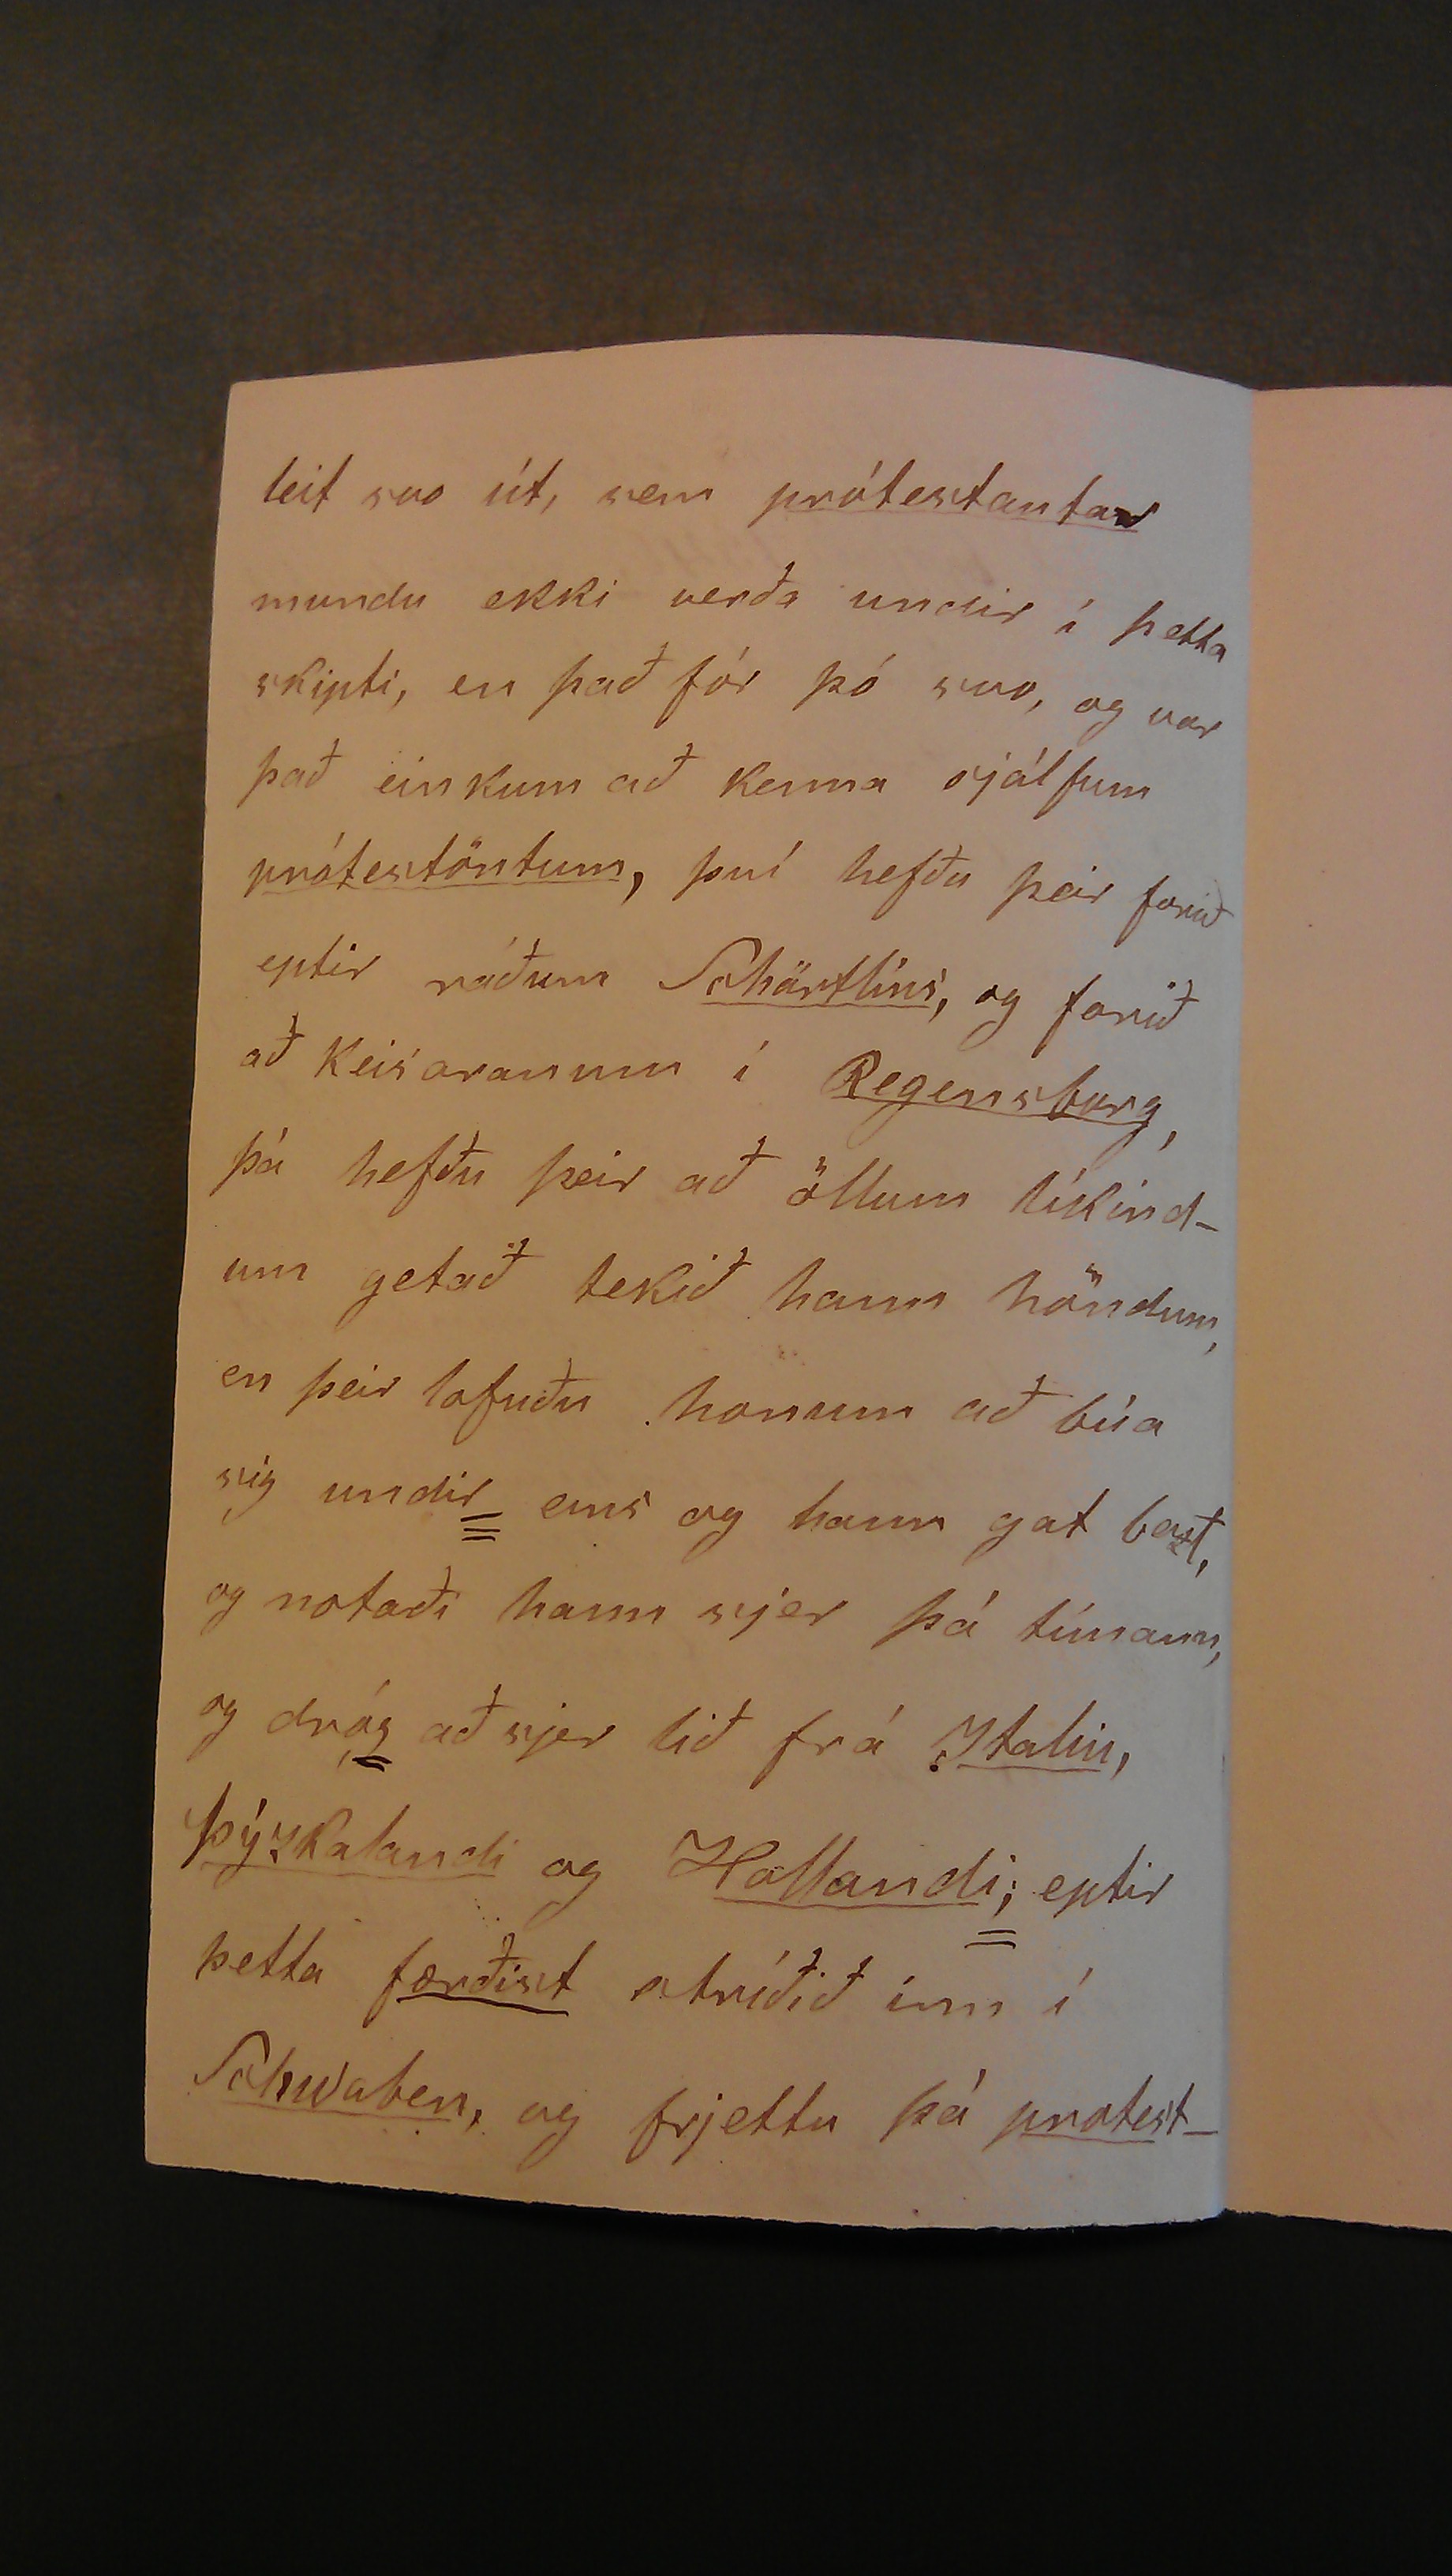 leit svo út, sem prótestantar
mundu ekki verða undir í þetta
skipti, en það fór þó svo, og var
það einkum að kenna sjálfum
prótestöntum, því hefðu þeir farið
eptir ráðum Schärtlins, og farið
að keisaranum í Regensborg,
þá hefðu þeir að öllum líkind-
um getað tekið hann höndum,
en þeir lofuðu honum að búa
sig undir eins og hann gat bezt,
og notaði hann sjer þá tímann,
og dróg að sjer lið frá Italíu,
Þýzkalandi og Hollandi; eptir
þetta færðist stríðið inn í
Schwaben, og frjettu þá protest-